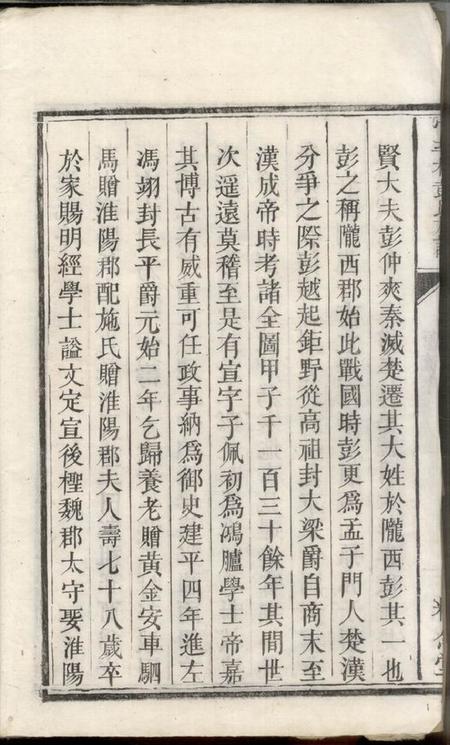 賢大夫彭仲爽秦滅楚遷其大姓於隴西彭其一也
彭之稱隴西郡始此戰國時彭更爲孟子門人楚漢
分爭之際彭越起鉅野從高祖封大梁爵自商末至
漢成帝時考諸全圖甲子千一百三十餘年其間世
次遥遠莫稽至是有宣字子佩初爲鴻臚學士帝嘉
其博古有威重可任政事納爲御史建平四年進左
馮翊封長平爵元始二年乞歸養老贈黃金安車駟
馬贈淮陽郡配施氏贈淮陽郡夫人壽七十八歲卒
於家賜明經學士謚文定宣後㮚魏郡太守要淮陽